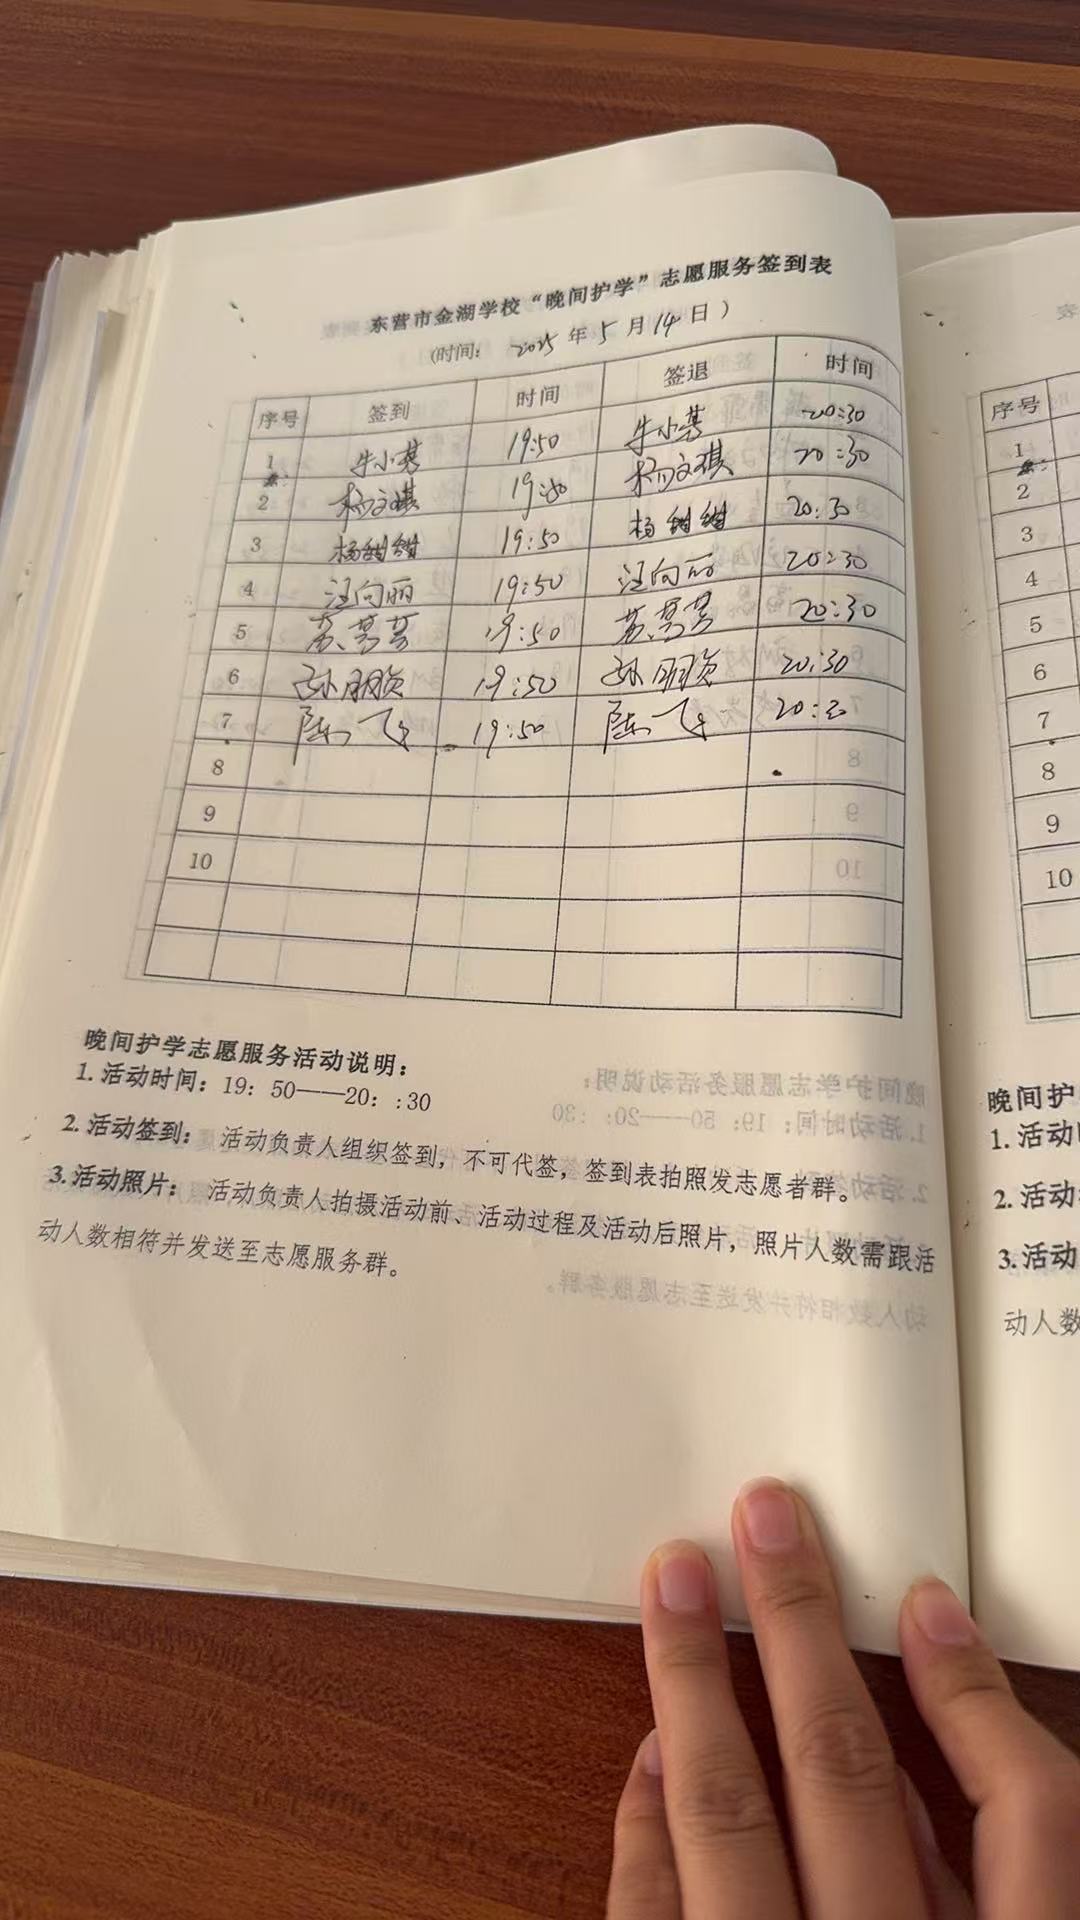 东营市金湖学校“晚间护学”志愿服务签到表
(时间： 2025 年 5 月 14 日 )
序号 签到 时间 签退 时间
1 牛小菶 19:50 牛小菶 20:30
2 杨文琪 19:50 杨文琪 20:30
3 杨甜甜 19:50 杨甜甜 20:30
4 汪向丽 19:50 汪向丽 20:30
5 19:50 20:30
6 孙朋贞 19:50 孙朋贞 20:30
7 陈飞 19:50 陈飞 20:30
8
9
10
晚间护学志愿服务活动说明：
1. 活动时间：19：50——20：:30
2. 活动签到： 活动负责人组织签到，不可代签，签到表拍照发志愿者群。
3. 活动照片： 活动负责人拍摄活动前、活动过程及活动后照片，照片人数需跟活
动人数相符并发送至志愿服务群。
序号
1
2
3
4
5
6
7
8
9
10
晚间护
1. 活动
2. 活动
3. 活动
动人数